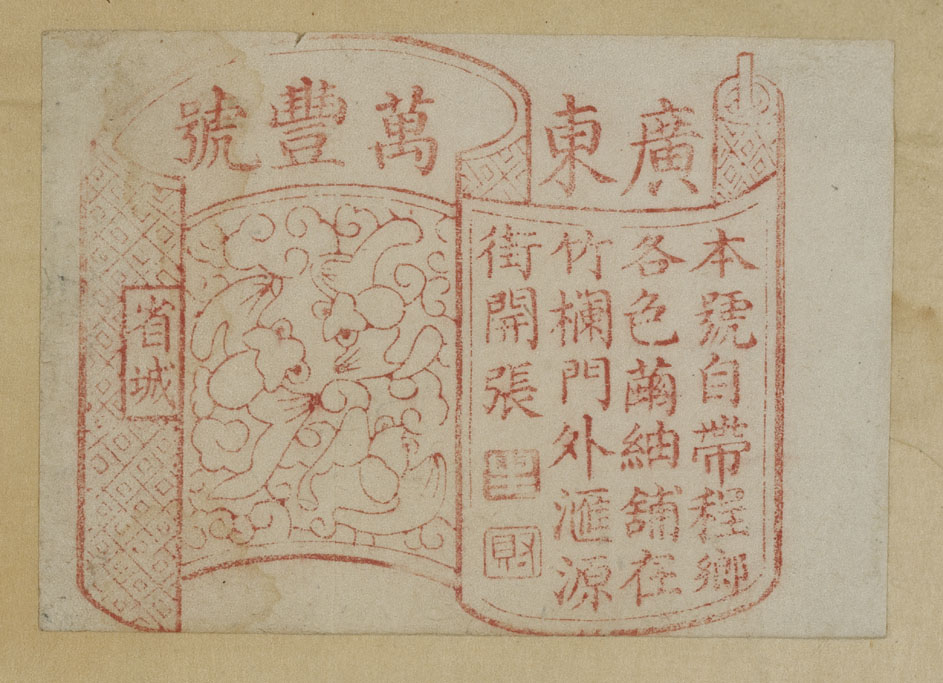 廣東
萬豐號
本號自帶程鄉
各色繭紬舖在
竹欄門外滙源
街開張
省城